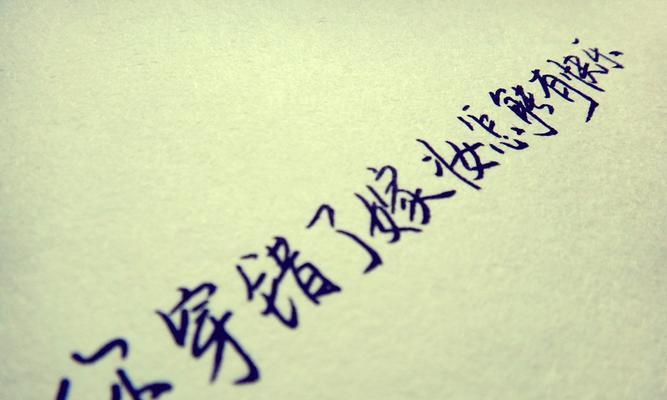 你穿错了嫁妆怎能有快乐